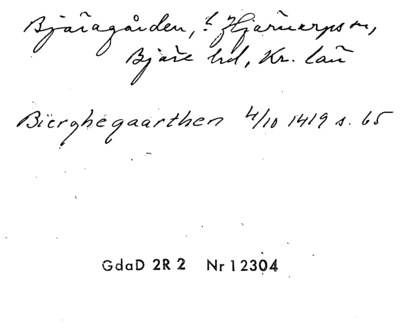 Bjäragården, i Hjärnarps sn,
Bjäre hd, Kr. län
Bierghegaarthen 4/10 1419 s. 65
GdaD 2R2 Nr 12304